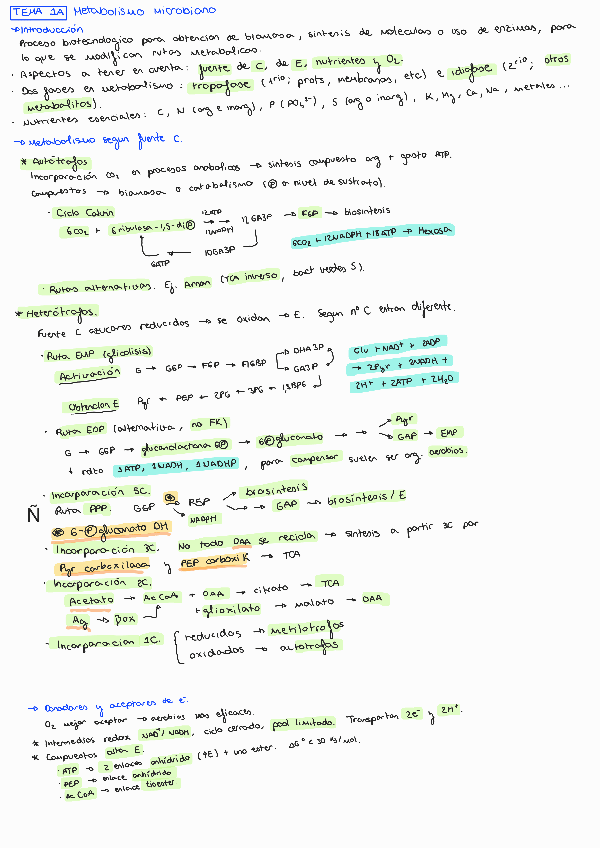 TEMA 1A Metabolismo microbiano
→ Introducción
Proceso biotecnologico para obtencion de biomasa, sintesis de moleculas o uso de enzimas, para
lo que se modifican rutas metabolicas.
· Aspectos a tener en cuenta: fuente de C, de E, nutrientes y O2.
· Dos fases en metabolismo: tropofase (1rio; prots, membranas, etc) e idiofase (2rio; otros
metabolitos).
· Nutrientes esenciales: C, N (org e inorg), P (PO4 2-), S (org o inorg), K, Mg, Ca, Na, metales...
→ Metabolismo segun fuente C.
* Autótrofos
Incorporación CO2 en procesos anabolicos → sintesis compuesto org + gasto ATP.
Compuestos → biomasa o catabolismo (P a nivel de sustrato).
· Ciclo Calvin
6CO2 + 6 ribulosa-1,5-diP 12ATP → → 12NADPH 12 GA3P → F6P → biosintesis
6ATP 10GA3P
6CO2 + 12NADPH + 18ATP → Hexosa
· Rutas alternativas. Ej. Arnon (TCA inverso, bact verdes S).
* Heterótrofos.
Fuente C azucares reducidos → se oxidan → E. Segun nº C entran diferente.
· Ruta EMP (glicolisis)
Activación G → G6P → F6P → F16BP DHA3P GA3P
Obtencion E Pyr ← PEP ← 2PG ← 3PG ← 1,3BPG
Glu + NAD+ + 2ADP
→ 2Pyr + 2NADH +
2H+ + 2ATP + 2H2O
· Ruta EDP (alternativa, no FK)
G → G6P → gluconolactona 6P → 6P gluconato → → Pyr GAP → EMP
+ rdto 1ATP, 1NADH, 1NADPH, para compensar suelen ser org. aerobios.
· Incorporación 5C.
Ruta PPP. G6P * → R5P → biosintesis
NADPH → → GAP → biosintesis / E
Ñ
* 6-P gluconato DH
· Incorporación 3C. No todo OAA se recicla → sintesis a partir 3C por
Pyr carboxilasa y PEP carboxiK → TCA
· Incorporación 2C.
Acetato → AcCoA + OAA → citrato → TCA
Ag → βox + glioxilato → malato → OAA
· Incorporacion 1C. reducidos → metilotrofos
oxidados → autotrofos
→ Donadores y aceptores de e-.
O2 mejor aceptor → aerobios mas eficaces.
* Intermedios redox NAD+/NADH, ciclo cerrado, pool limitado. Transportan 2e- y 2H+.
* Compuestos alta E.
· ATP → 2 enlaces anhidrido (+E) + uno ester. ΔG° < 30 KJ/mol.
· PEP → enlace anhidrido
· AcCoA → enlace tioester